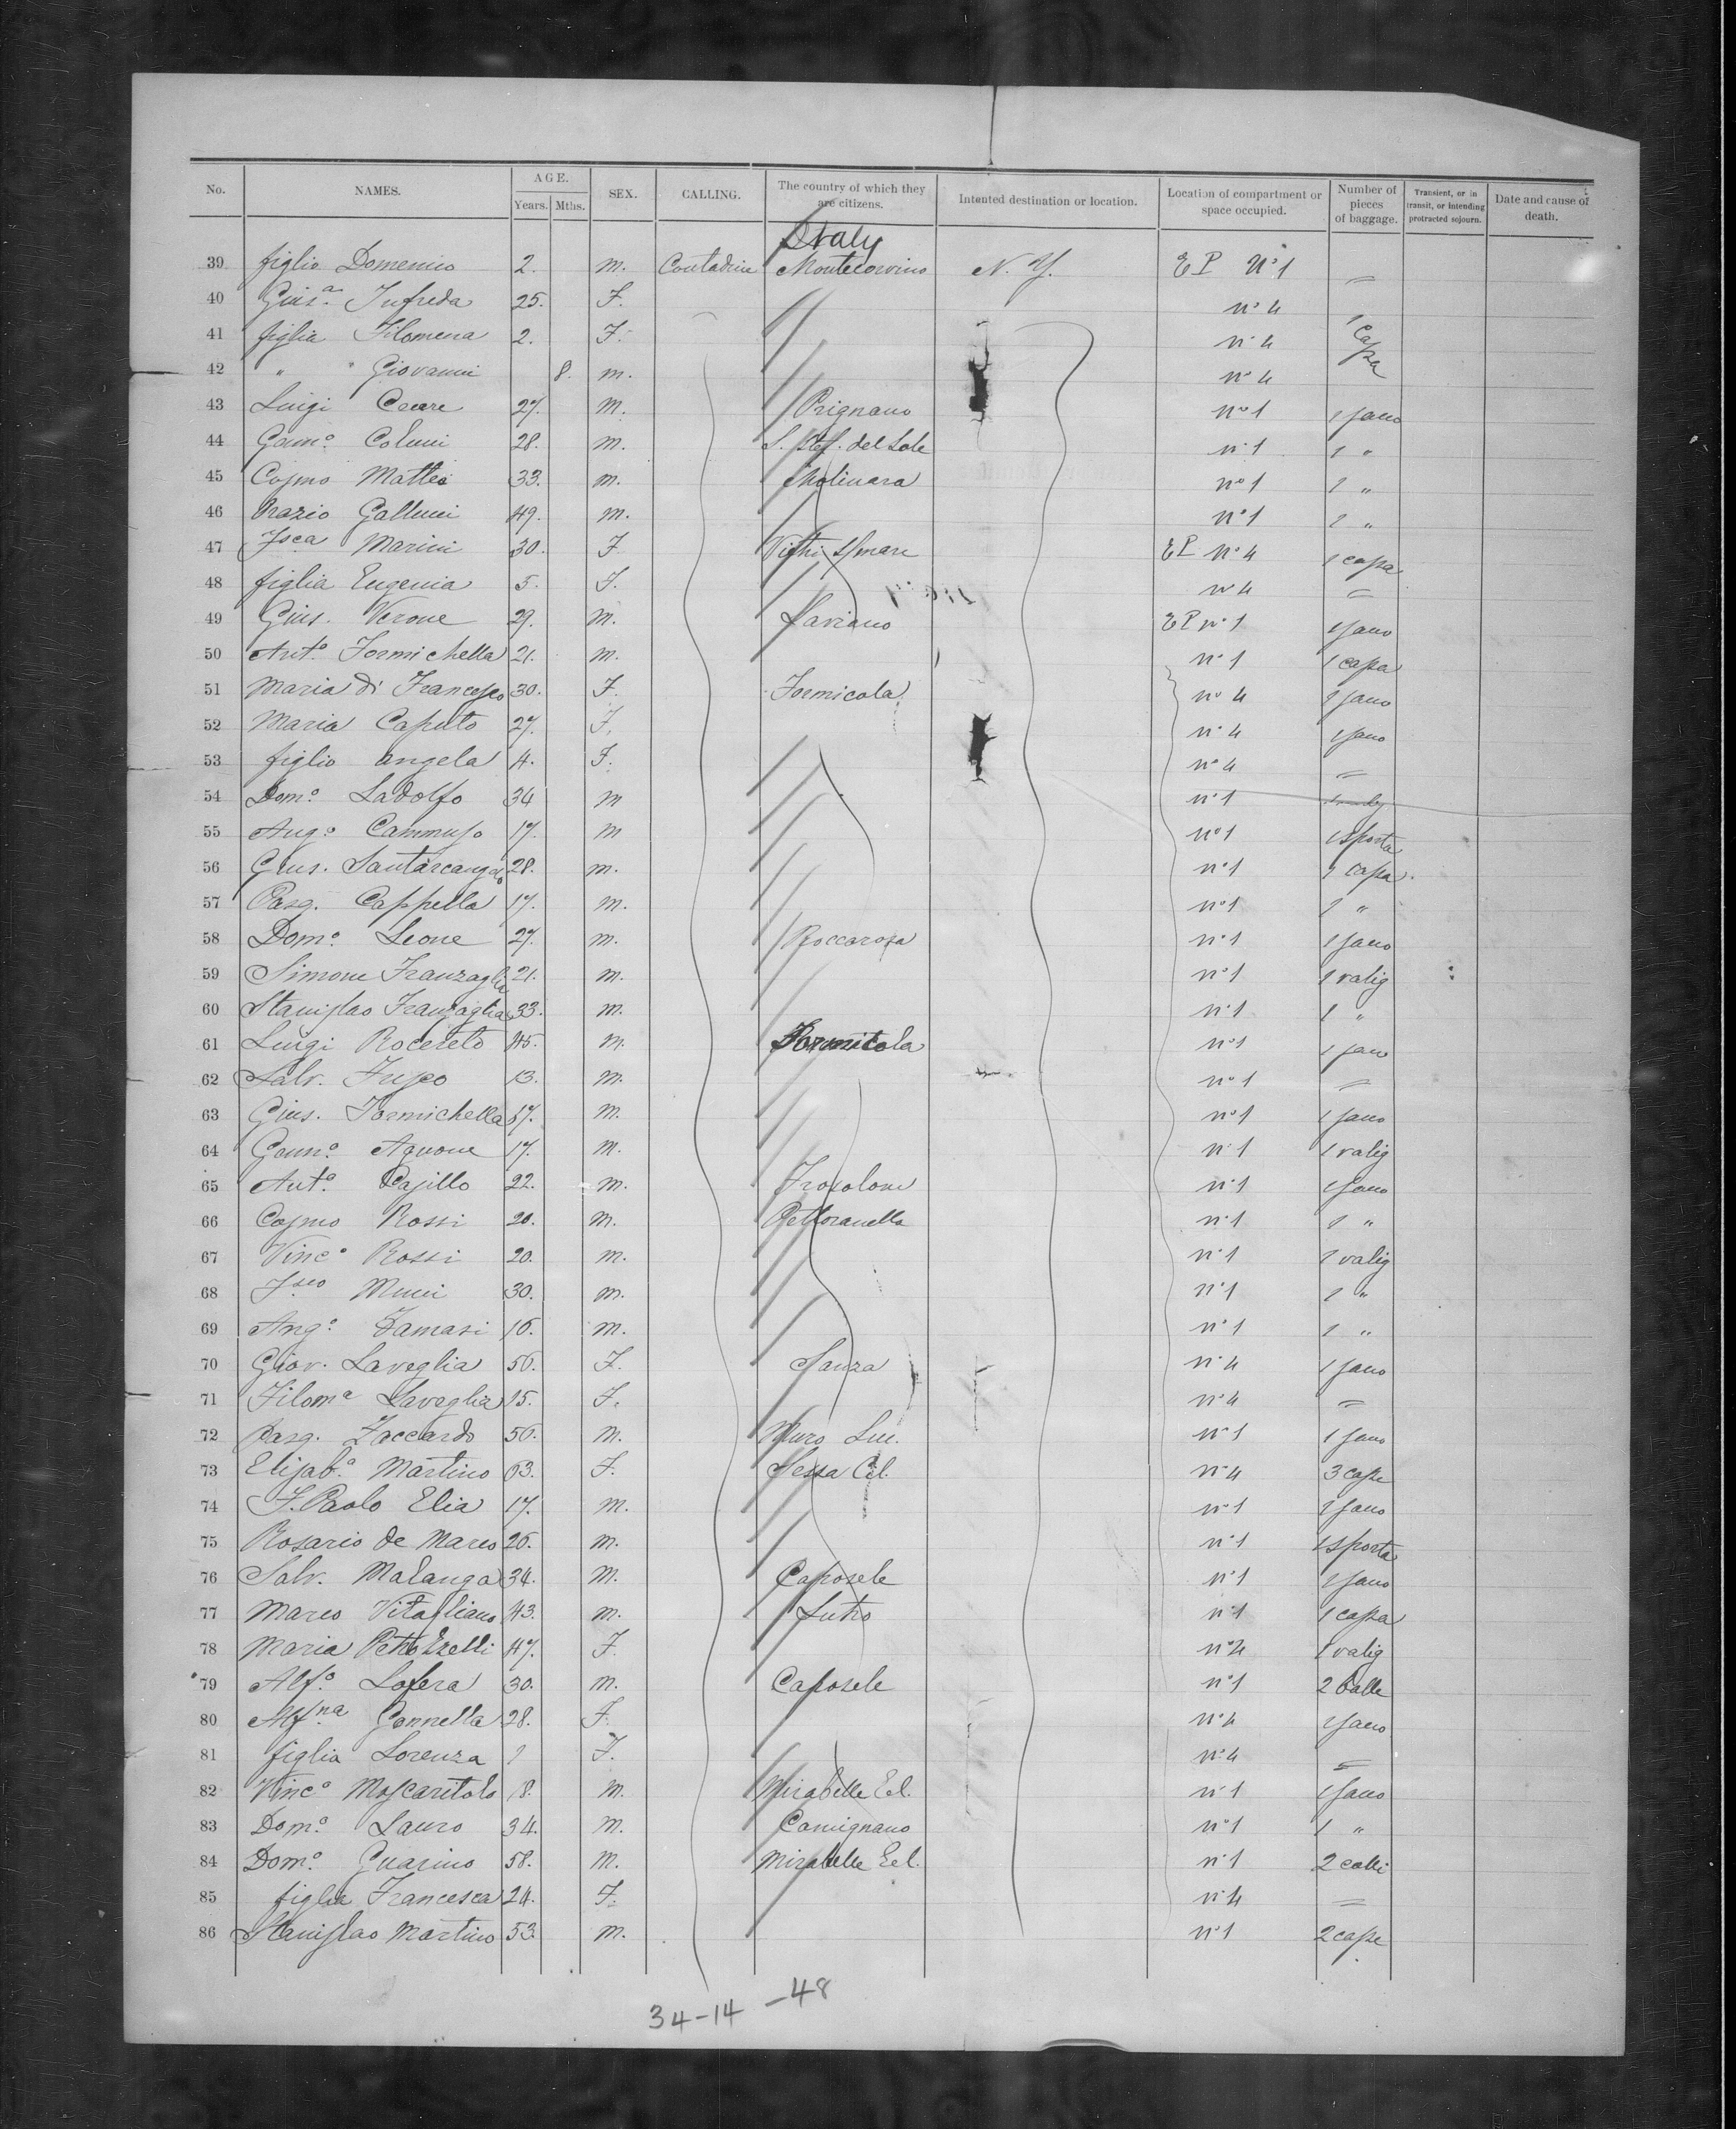 No. NAMES. AGE. Years. Mths. SEX. CALLING. The country of which they are citizens. Intented destination or location. Location of compartment or space occupied. Number of pieces of baggage. Transient, or in transit, or intending protracted sojourn. Date and cause of death.
Italy
39 figlio Domenico 2. m. Contadine Montecorvino N. Y. E P N° 1 =
40 Gius.a Jufreda 25. F. n° 4
41 figlia Filomena 2. F. n° 4 1 Capa
42 " " Giovanni 8. m. n° 4
43 Luigi 27. m. Prignano n° 1 1 sano
44 28. m. S. Stef. del Sole n° 1 1 "
45 Cosmo Matteo 33. m. Molinara n° 1 1 "
46 Orazio Gallucci 49. m. n° 1 1 "
47 Fsca Marini 30. F Viethri s/mare E P n° 4 1 capa
48 figlia Eugenia 5. F. n° 4 =
49 Gius. Verone 29. m. Laviano E P n° 1 1 sano
50 Ant.o Formichella 21. m. n° 1 1 capa
51 Maria di Francesco 30. F. Formicola n° 4 1 sano
52 Maria Caputo 27. F. n° 4 1 sano
53 figlio angela 4. F. n° 4 =
54 Dom.o Ladolfo 34 m n° 1
55 Aug.o Cammuso 17. m n° 1 1 sporta
56 Gius. Santarcangelo 28. m. n° 1 1 capa.
57 Pasq. Cappella 17. m. n° 1 1 "
58 Dom.o Leone 27. m. Roccarosa n° 1 1 sano
59 Simone Franzaglia 21. m. n° 1 1 valig
60 Stanislao Franzaglia 33. m. n° 1 1 "
61 Luigi Rocereto 45. m. Formicola n° 1 1 sano
62 Salv. Fusco 13. m. n° 1 =
63 Gius. Formichella 17. m. n° 1 1 sano
64 Genn.o Agnone 17. m. n° 1 1 valig
65 Ant.o Pasillo 22. m. Frosolone n° 1 1 sano
66 Cosmo Rossi 20. m. Pettoranello n° 1 1 "
67 Vinc.o Rossi 20. m. n° 1 1 valig
68 Fsco Mucci 30. m. n° 1 1 "
69 Ang.o Tamasi 16. m. n° 1 1 "
70 Giov. Laveglia 56. F. Sanza n° 4 1 sano
71 Filom.a Laveglia 15. F. n° 4 =
72 Pasq. Zaccardo 50. m. Muro Luc. n° 1 1 sano
73 Elisab.a Martino 63. F. Sessa Cil. n° 4 3 cape
74 F. Paolo Elia 17. m. n° 1 1 sano
75 Rosario de Marco 26. m. n° 1 1 sporta
76 Salv. Malanga 34. m. Caposele n° 1 1 sano
77 Marco Vitagliano 43. m. n° 1 1 capa
78 Maria Petrozzelli 47. F n° 4 1 valig
79 Alf.o Lofera 30. m. Caposele n° 1 2 balle
80 Alf.na Gonnella 28. F. n° 4 1 sano
81 figlia Lorenza 1 F. n° 4 =
82 Vinc.o Moscaritolo 18. m. Mirabella Ecl. n° 1 1 sano
83 Dom.o Lauro 34. m. Camignano n° 1 1 "
84 Dom.o Guarino 58. m. Mirabella Ecl. n° 1 2 colli
85 figlia Francesca 24. F. n° 4 =
86 Stanislao Martino 53. m. n° 1 2 cape
34-14 -48